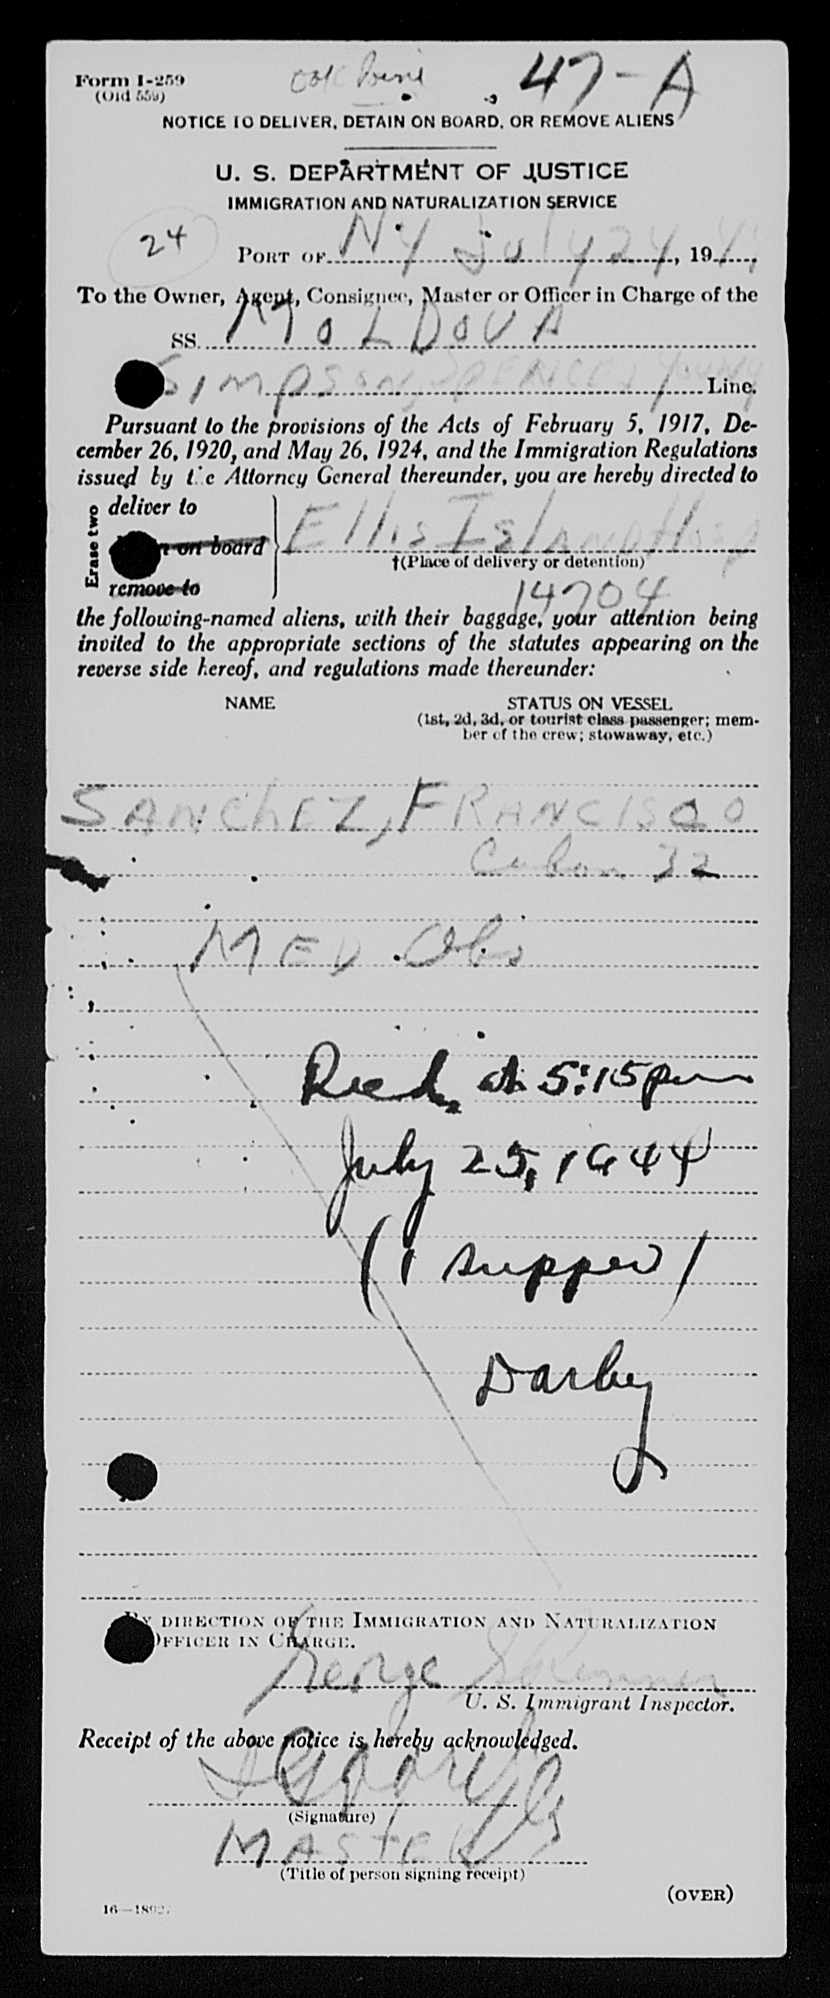 Form I-259
(Old 559)
47-A
NOTICE TO DELIVER, DETAIN ON BOARD, OR REMOVE ALIENS
U. S. DEPARTMENT OF JUSTICE
IMMIGRATION AND NATURALIZATION SERVICE
24
PORT OF NY July 24, 194
To the Owner, Agent, Consignee, Master or Officer in Charge of the
SS. MOLDOVA
SIMPSON, SPENCE & YOUNG Line.
Pursuant to the provisions of the Acts of February 5, 1917, De-
cember 26, 1920, and May 26, 1924, and the Immigration Regulations
issued by the Attorney General thereunder, you are hereby directed to
Erase two
deliver to
on board
remove to
Ellis Island Hosp
†(Place of delivery or detention)
14704
the following-named aliens, with their baggage, your attention being
invited to the appropriate sections of the statutes appearing on the
reverse side hereof, and regulations made thereunder:
NAME STATUS ON VESSEL
(1st, 2d, 3d, or tourist class passenger; mem-
ber of the crew; stowaway, etc.)
SANCHEZ, FRANCISCO
Cuban 32
MED. Obs
Recd. at 5:15 pm
July 25, 1944
(1 supper)
Darby
BY DIRECTION OF THE IMMIGRATION AND NATURALIZATION
OFFICER IN CHARGE.
George
U. S. Immigrant Inspector.
Receipt of the above notice is hereby acknowledged.
(Signature)
MASTER
(Title of person signing receipt)
(OVER)